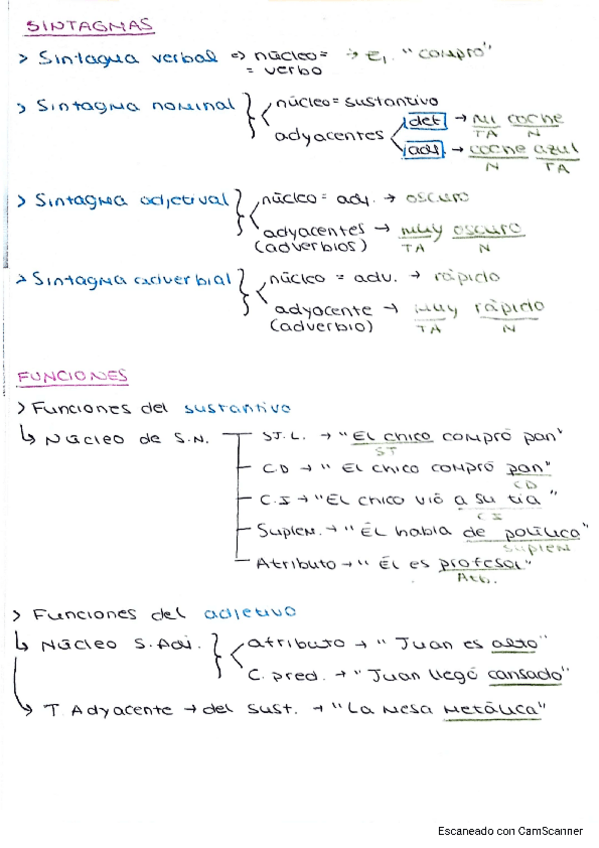 SINTAGMAS
> Sintagma verbal ⇨ núcleo = → Ej. "compro"
= verbo
> Sintagma nominal núcleo = sustantivo
adyacentes det → mi coche
TA N
adj. → coche azul
N TA
> Sintagma adjetival núcleo = adj. → oscuro
adyacentes → muy oscuro
(adverbios) TA N
> Sintagma adverbial núcleo = adv. → rápido
adyacente → muy rápido
(adverbio) TA N
FUNCIONES
> Funciones del sustantivo
↳ Núcleo de S.N. SJ.L. → "El chico compró pan"
ST
C.D → "El chico compró pan"
CD
C.I → "El chico vió a su tía"
CI
Suplem. → "Él habla de política"
Suplem
Atributo → "Él es profesor"
Atb.
> Funciones del adjetivo
↳ Núcleo S.Adj. atributo → "Juan es alto"
C. pred. → "Juan llegó cansado"
↳ T. Adyacente → del sust. → "La mesa metálica"
Escaneado con CamScanner